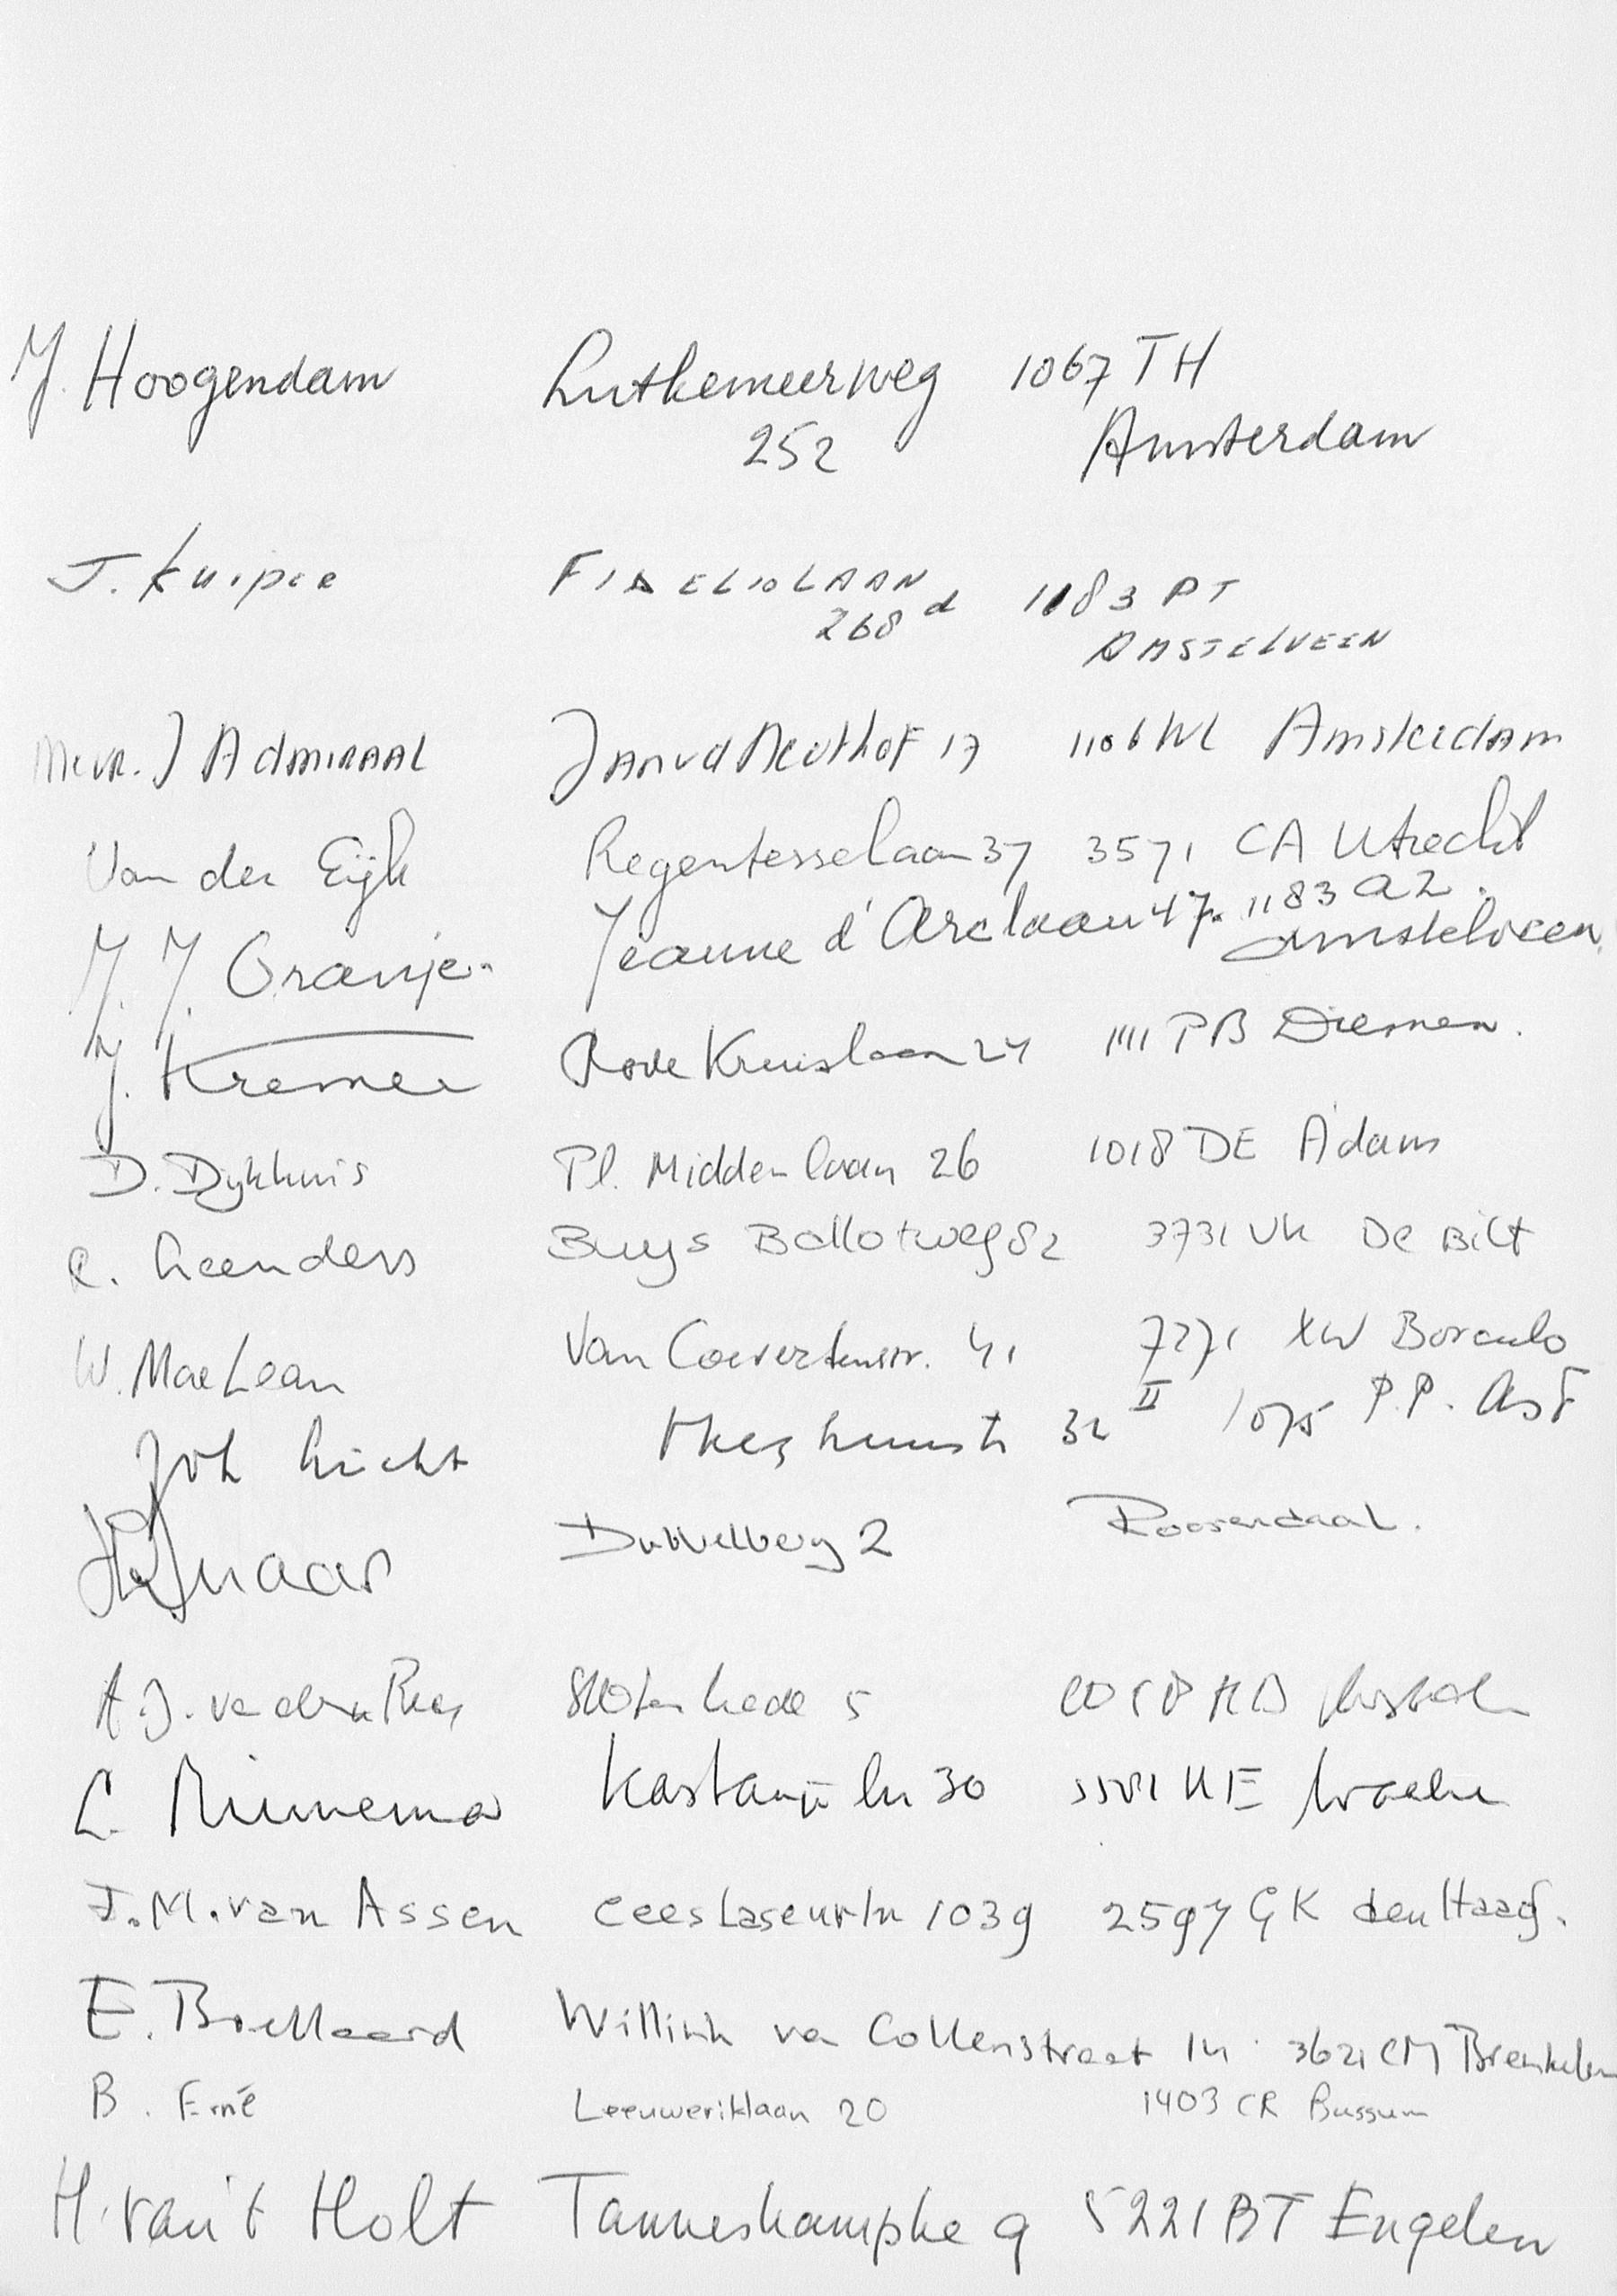 J. Hoogendam Lutkemeerweg 1067 TH
252 Amsterdam
J. Kuiper FIDELIOLAAN 1183 PT
268 d AMSTELVEEN
Mevr. J Admiraal 17 1106 WL Amsterdam
Van der Eijk Regentesselaan 37 3571 CA Utrecht
J. J. Oranje. Jeanne d'Arclaan 47. 1183 AZ.
Amstelveen.
J. Kremer Rode Kruislaan 24 1111 PB Diemen.
D. Dykhuis Pl. Middenlaan 26 1018 DE A'dam
R. Leenders Buys Ballotweg 82 3731 VK De Bilt
W. MacLean Van Coeverdenstr. 41 7271 XW Borculo
Joh Licht 32 II 1075 P.P. Asd
Dubbelberg 2 Roosendaal.
A. J. 5
L. Minnema Kastanje ln 30
J. M. van Assen Cees Laseurln 1039 2597 GK den Haag.
E. Boellaard Willink va Collenstraat 14 3621 CM Breukelen
B. Erné Leeuweriklaan 20 1403 CR Bussum
H. van 't Holt Tanneskampke 9 5221 BT Engelen